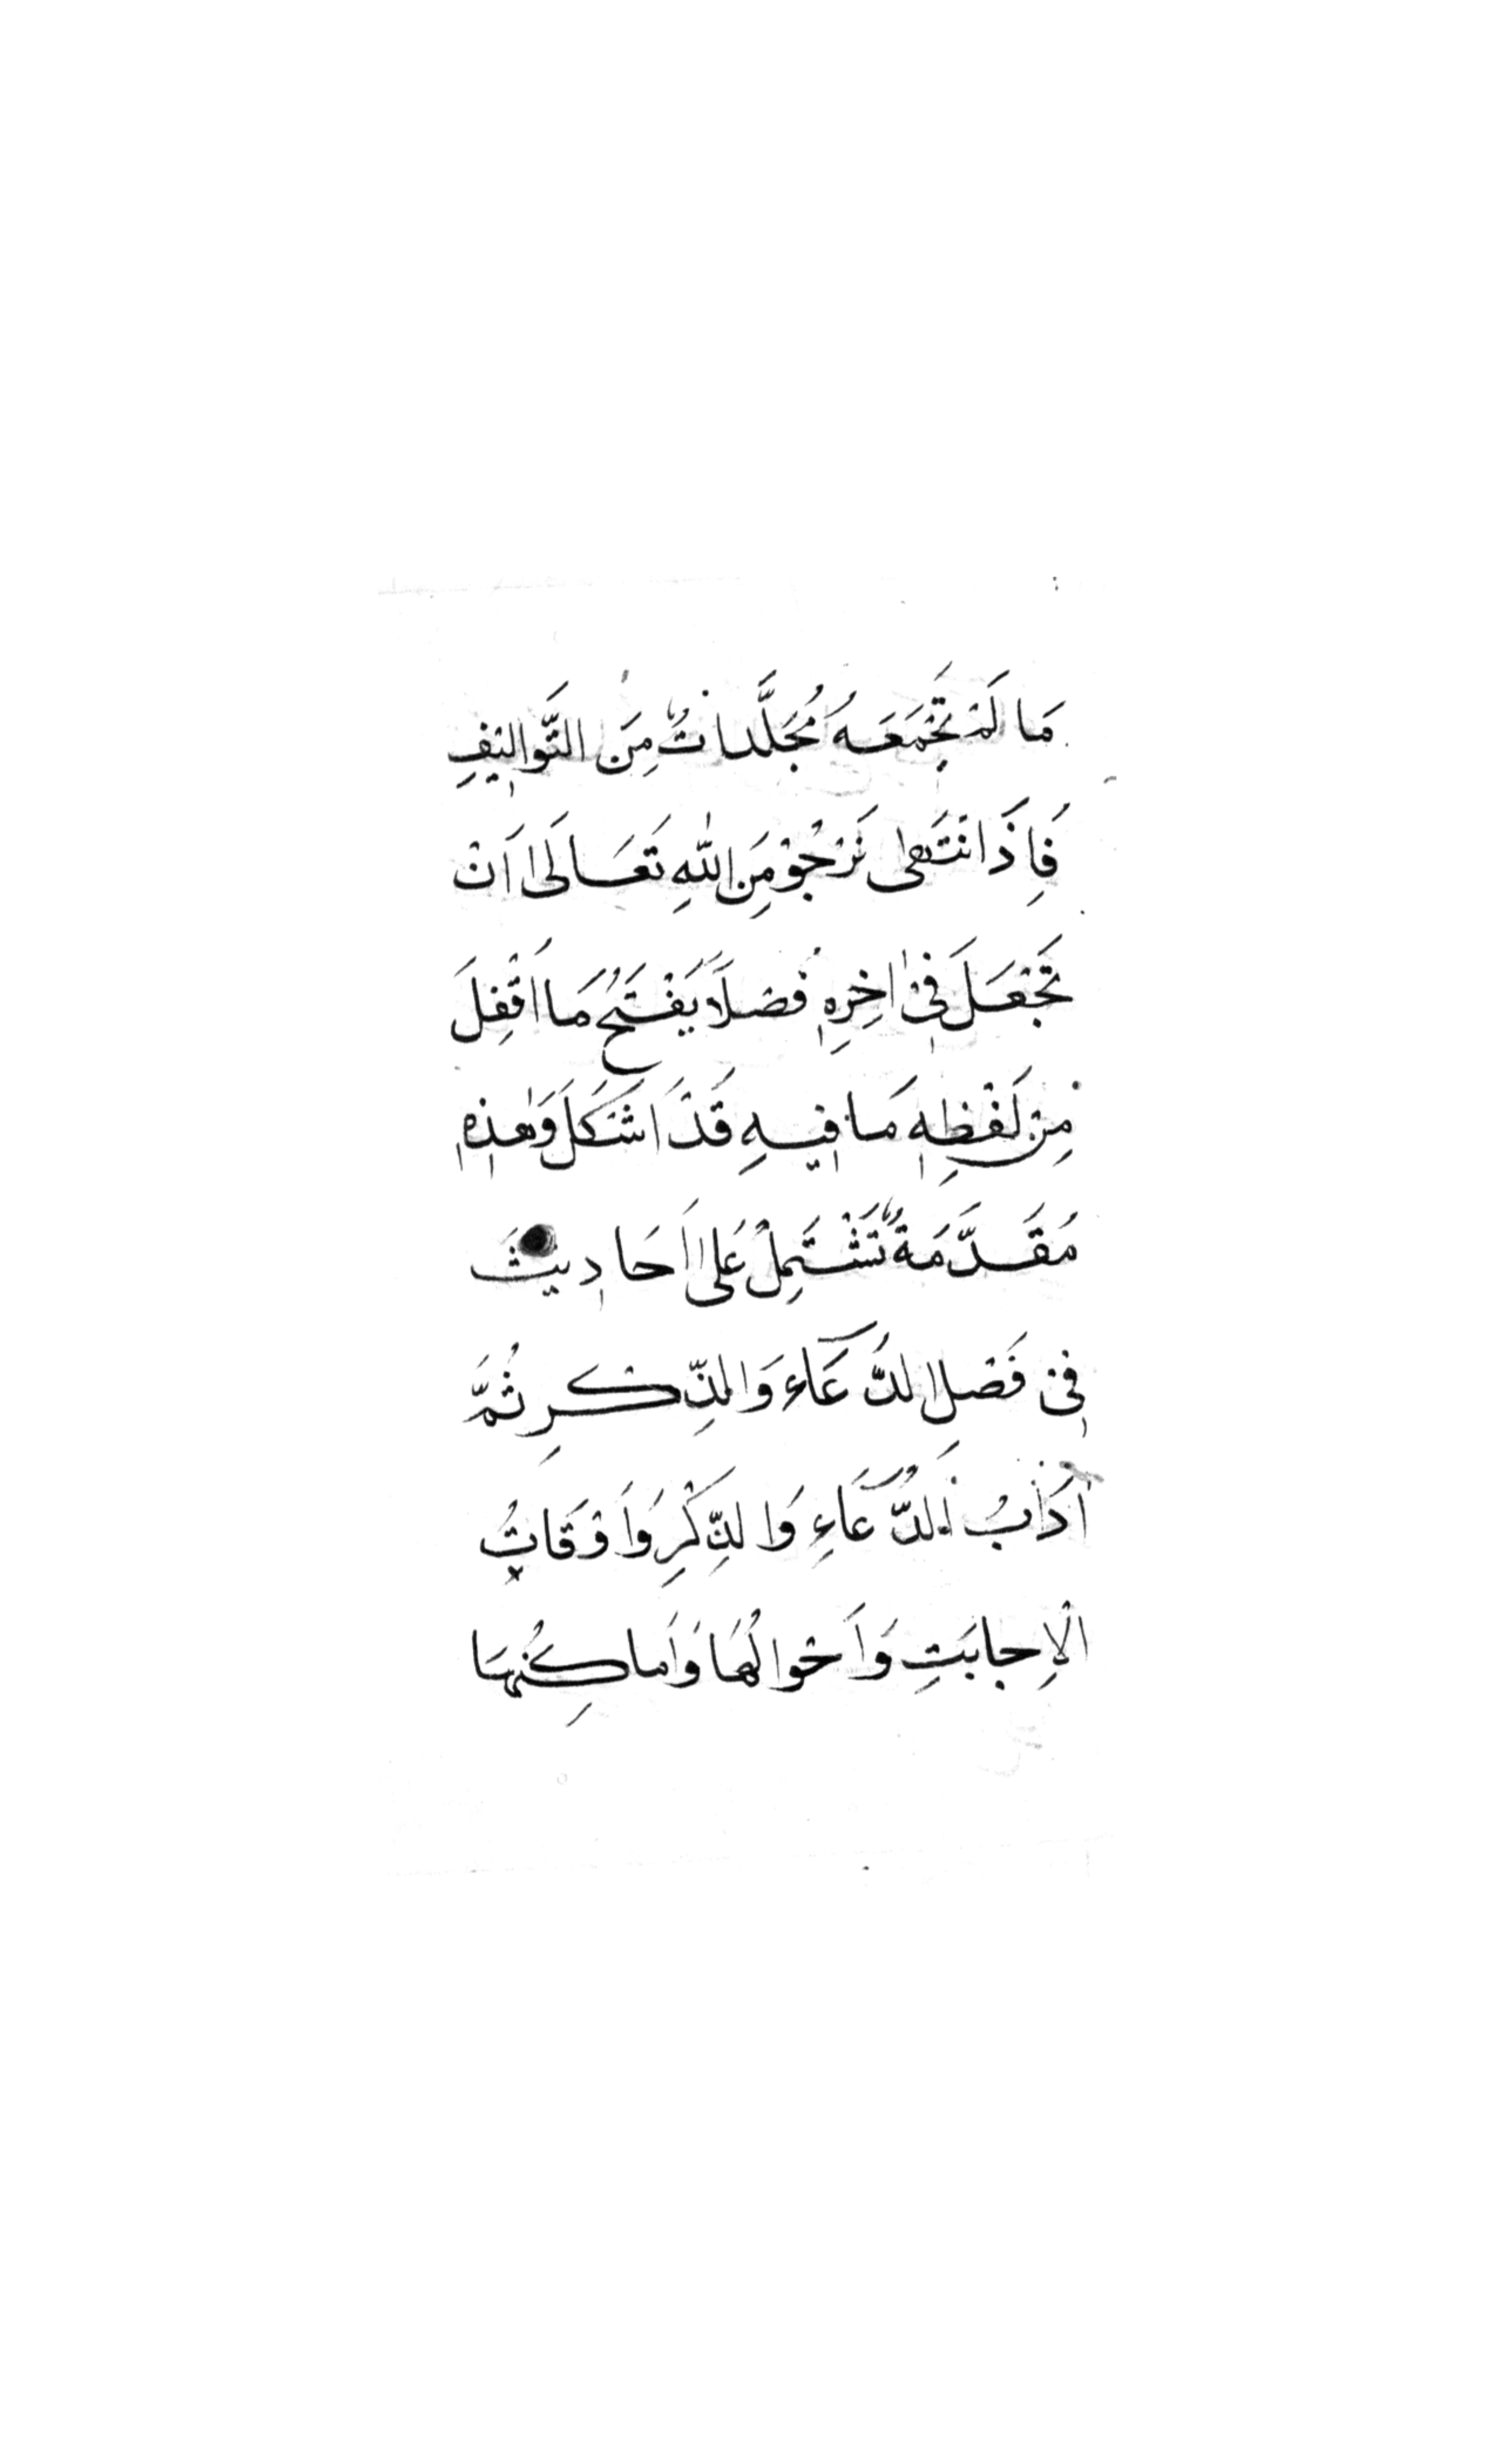 مَا لَمْ تَجْمَعْهُ مُجَلَّدَاتٌ مِنَ التَّوَالِيفِ
فَاِذَا انْتَهٰى نَرْجُوْ مِنَ اللّٰهِ تَعَالَىٰ اَنْ
نَجْعَلَ فِىْ اٰخِرِهٖ فَصْلًا يَفْتَحُ مَا اُقْفِلَ
مِنْ لَفْظِهٖ مَا فِيهِ قَدْ اَشْكَلَ وَهٰذِهٖ
مُقَدَّمَةٌ تَشْتَمِلُ عَلىٰ اَحَادِيثَ
فِىْ فَضْلِ الدُّعَآءِ وَالذِّكْرِ ثُمَّ
اٰدَابُ الدُّعَآءِ وَالذِّكْرِ وَاَوْقَاتُ
الْاِجَابَتِ وَاَحْوَالُهَا وَاَمَاكِنُهَا